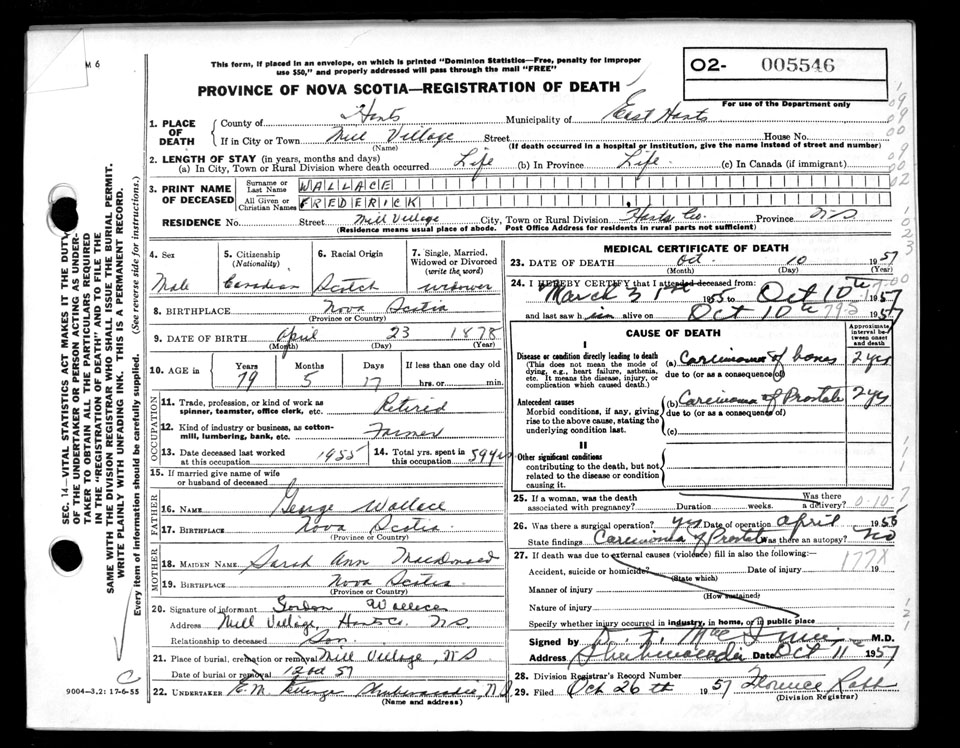 M 6
This form, if placed in an envelope, on which is printed "Dominion Statistics—Free, penalty for improper
use $50," and properly addressed will pass through the mail "FREE"
PROVINCE OF NOVA SCOTIA—REGISTRATION OF DEATH
O2- 005546
For use of the Department only
1. PLACE OF DEATH
County of Hants Municipality of East Hants
If in City or Town Mill Village Street House No.
(Name) (If death occurred in a hospital or institution, give the name instead of street and number)
2. LENGTH OF STAY (in years, months and days)
(a) In City, Town or Rural Division where death occurred Life (b) In Province Life (c) In Canada (if immigrant)
3. PRINT NAME OF DECEASED
Surname or Last Name WALLACE
All Given or Christian Names FREDERICK
RESIDENCE No. Street Mill Village City, Town or Rural Division Hants Co. Province N S
(Residence means usual place of abode. Post Office Address for residents in rural parts not sufficient)
4. Sex
Male
5. Citizenship
(Nationality)
Canadian
6. Racial Origin
Scotch
7. Single, Married, Widowed or Divorced
(write the word)
widower
8. BIRTHPLACE Nova Scotia
(Province or Country)
9. DATE OF BIRTH April 23 1878
(Month) (Day) (Year)
10. AGE in Years Months Days If less than one day old
79 5 17 hrs. or min.
OCCUPATION
11. Trade, profession, or kind of work as
spinner, teamster, office clerk, etc. Retired
12. Kind of industry or business, as cotton-
mill, lumbering, bank, etc. Farmer
13. Date deceased last worked
at this occupation 1955
14. Total yrs. spent in
this occupation 59 yrs
15. If married give name of wife
or husband of deceased
FATHER
16. NAME George Wallace
17. BIRTHPLACE Nova Scotia
(Province or Country)
MOTHER
18. MAIDEN NAME Sarah Ann MacDonald
19. BIRTHPLACE Nova Scotia
(Province or Country)
20. Signature of informant Gordon Wallace
Address Mill Village, Hants Co. N.S.
Relationship to deceased Son
21. Place of burial, cremation or removal Mill Village, N S
Date of burial or removal 12 Oct 57
22. UNDERTAKER E.M. Shubenacadie, N.S.
(Name and address)
MEDICAL CERTIFICATE OF DEATH
23. DATE OF DEATH Oct. 10 1957
(Month) (Day) (Year)
24. I HEREBY CERTIFY that I attended deceased from:
March 31st 1955 to Oct 10th 1957
and last saw him alive on Oct 10th 1957
CAUSE OF DEATH
Approximate interval between onset and death
I
Disease or condition directly leading to death
(This does not mean the mode of
dying, e.g., heart failure, asthenia,
etc. It means the disease, injury, or
complication which caused death.)
(a) Carcinoma of bones 2 yrs
due to (or as a consequence of)
Antecedent causes
Morbid conditions, if any, giving
rise to the above cause, stating the
underlying condition last.
(b) Carcinoma of Prostate 2 yrs
due to (or as a consequence of)
(c)
II
Other significant conditions
contributing to the death, but not
related to the disease or condition
causing it.
25. If a woman, was the death
associated with pregnancy? Duration weeks. Was there a delivery?
26. Was there a surgical operation? yes Date of operation April 1955
State findings Carcinoma of Prostate Was there an autopsy? No
27. If death was due to external causes (violence) fill in also the following:
Accident, suicide or homicide? Date of injury 19
(State which)
177X
Manner of injury
(How sustained)
Nature of injury
Specify whether injury occurred in industry, in home, or in public place
Signed by M.D.
Address Shubenacadie Date Oct 11th 1957
28. Division Registrar's Record Number
29. Filed Oct 26th 1957 Florence
(Division Registrar)
SEC. 14—VITAL STATISTICS ACT MAKES IT THE DUTY
OF THE UNDERTAKER OR PERSON ACTING AS UNDER-
TAKER TO OBTAIN ALL THE PARTICULARS REQUIRED
IN THE "REGISTRATION OF DEATH" AND TO FILE THE
SAME WITH THE DIVISION REGISTRAR WHO SHALL ISSUE THE BURIAL PERMIT.
WRITE PLAINLY WITH UNFADING INK. THIS IS A PERMANENT RECORD.
Every item of information should be carefully supplied. (See reverse side for instructions.)
9004-3.2: 17-6-55